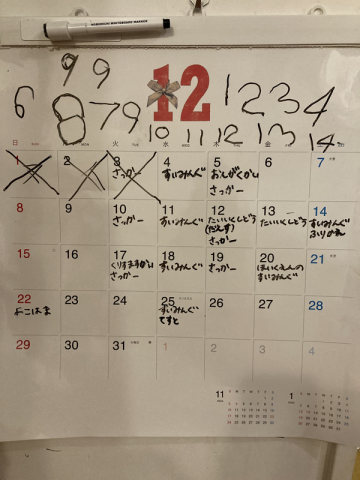 9 9
6 8 7 9 12 1 2 3 4
10 11 12 13 14
日 月 火 水 木 金
1 2 3 4 5 6 7
さっかー すいみんぐ おんがくかい
さっかー
8 9 10 11 12 13 14
さっかー すいみんぐ たいいくしどう たいいくしどう すいみんぐ
さっかー ふりかえ
15 16 17 18 19 20 21
くりすますかい すいみんぐ さっかー ほいくえんの
さっかー すいみんぐ
22 23 24 25 26 27 28
よこはま すいみんぐ
てすと
29 30 31 1 2 3 4
11 1